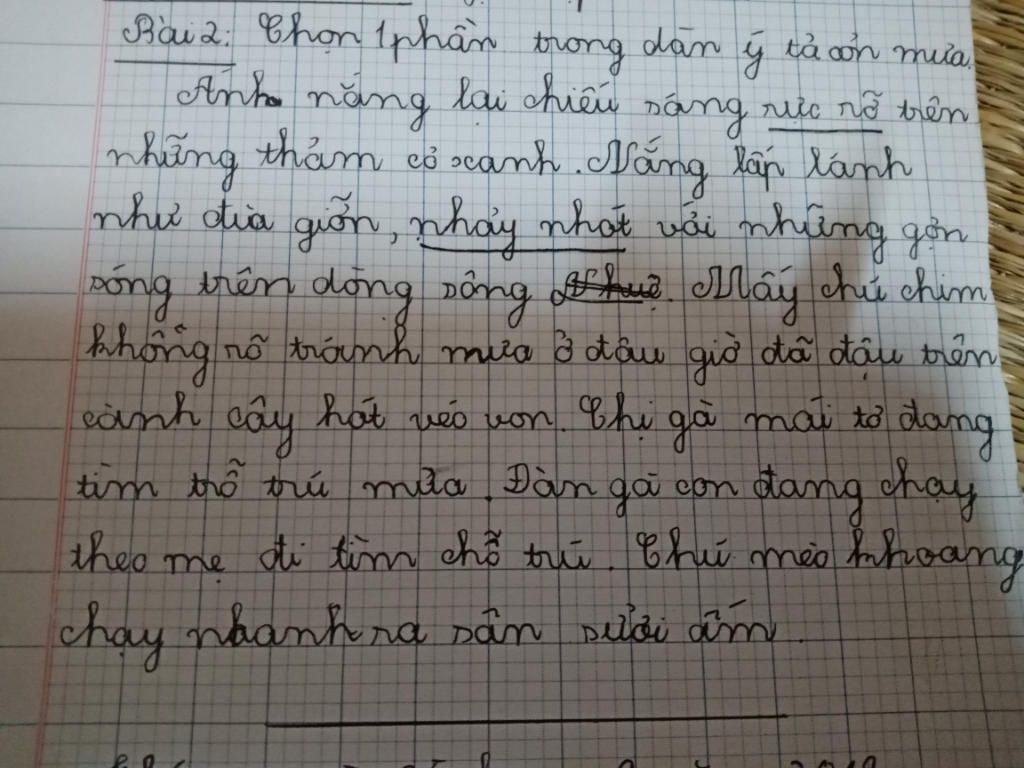 Bài 2: Chọn 1 phần trong dàn ý tả cơn mưa.
Ánh nắng lại chiếu sáng rực rỡ trên
những thảm cỏ xanh. Nắng lấp lánh
như đùa giỡn, nhảy nhót với những gợn
sóng trên dòng sông. Mấy chú chim
không rõ tránh mưa ở đâu giờ đã đậu trên
cành cây hót véo von. Chị gà mái tơ đang
tìm chỗ trú mưa. Đàn gà con đang chạy
theo mẹ đi tìm chỗ trú. Chú mèo khoang
chạy nhanh ra sân sưởi ấm.